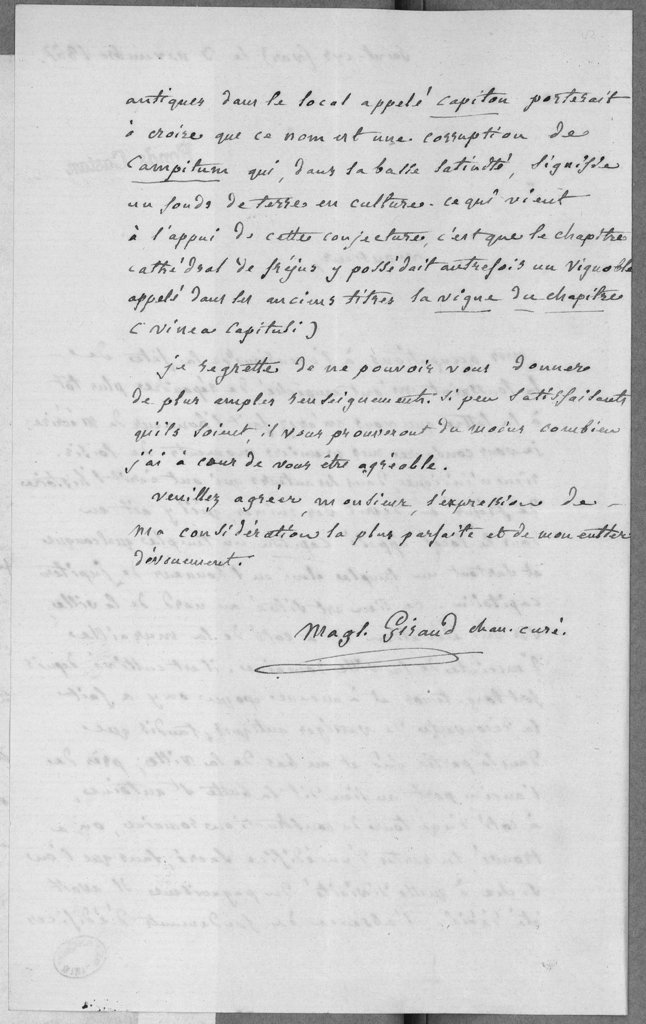 antiques dans le local appelé capiton porterait
à croire que ce nom est une corruption de
Campitum qui, dans la basse latinité, signifie
un fonds de terre en culture. ce qui vient
à l'appui de cette conjecture, c'est que le chapitre
cathédral de fréjus y possédait autrefois un vignoble
appelé dans les anciens titres la vigne du chapitre
(vinea Capituli)
je regrette de ne pouvoir vous donner
de plus amples renseignements. si peu satisfaisants
qu'ils soient, il vous prouveront du moins combien
j'ai à cœur de vous être agréable.
veuillez agréer, monsieur, l'expression de
ma considération la plus parfaite et de mon entier
dévouement.
Magl. Giraud chan. curé.